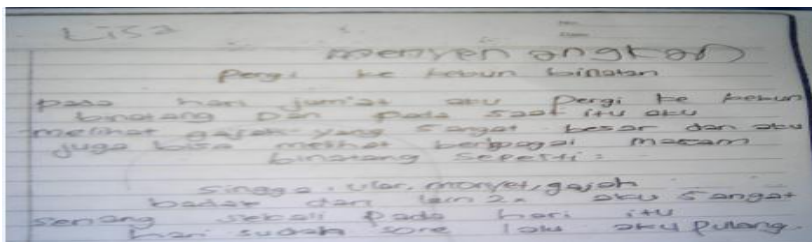 Lisa
menyenangkan
pergi ke kebun binatan
pada hari jumiat aku pergi ke kebun
binatang Dan pada saat itu aku
melihat gajah yang sangat besar dan aku
juga bisa melihat berbagai macam
binatang seperti:
singga, ular, monyet, gajah
badak dan lain2. aku sangat
senang sekali pada hari itu
hari sudah sore lalu aku pulang.